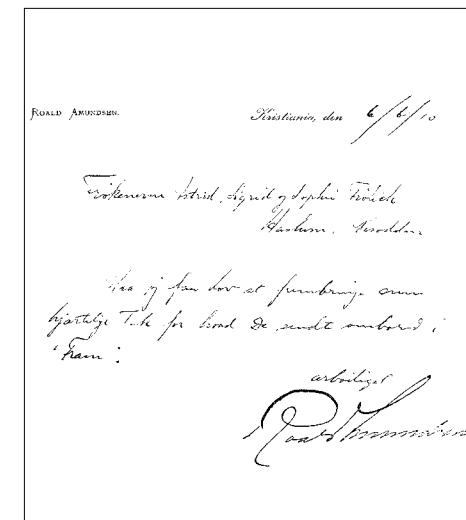 ROALD AMUNDSEN.
Kristiania, den 6/6/10
Frøknerne Astrid, Sigrid og Sophie Frölich
Haslum. Nesodden.
Maa jeg faa lov at frembringe min
hjertelige Tak for hvad De sendt ombord i
"Fram".
ærbødigst
Roald Amundsen